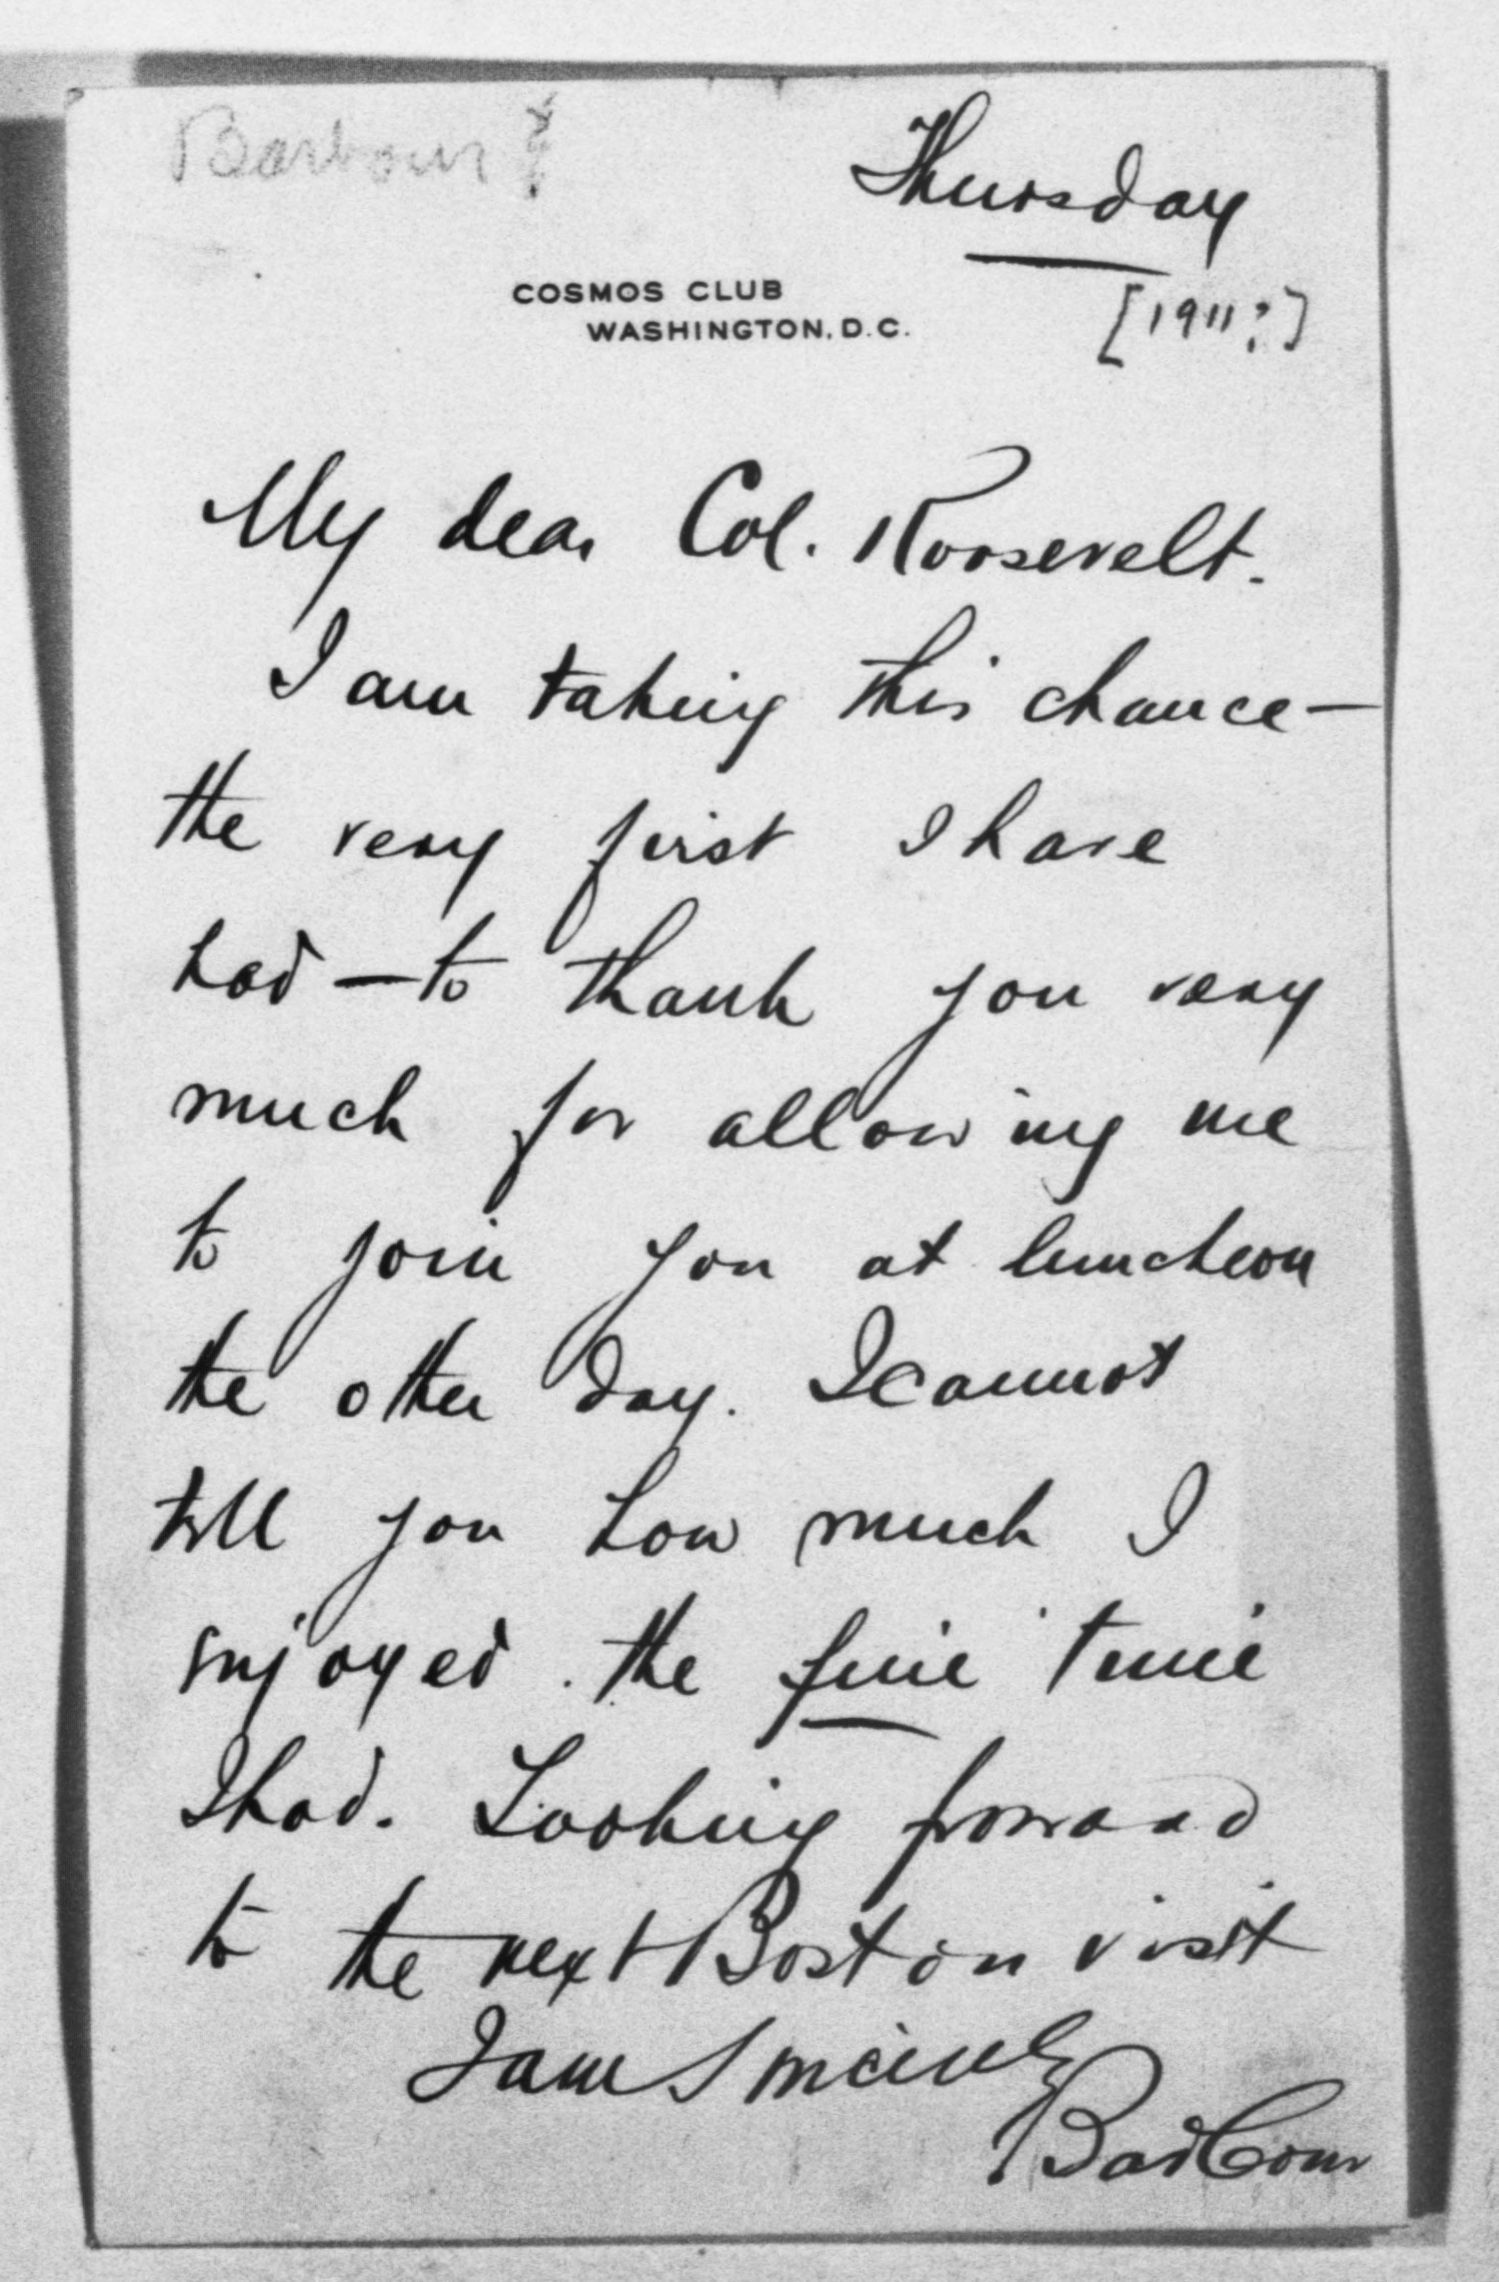 Barbour
Thursday
COSMOS CLUB
WASHINGTON, D.C.
[1911?]
My dear Col. Roosevelt.
I am taking this chance—
the very first I have
had — to thank you very
much for allowing me
to join you at luncheon
the other day. I cannot
tell you how much I
enjoyed the fine time
I had. Looking forward
to the next Boston visit
I am Sincerely
Barbour